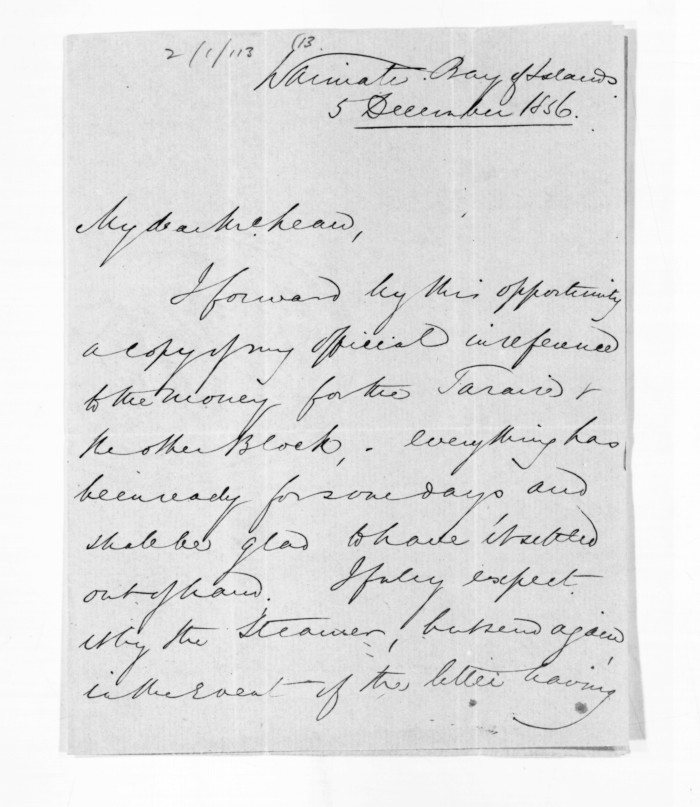 2/1/113 113.
Waimate. Bay of Islands
5 December 1856.
My dear McLean,
I forward by this opportunity
a copy of my official in reference
to the money for the Taraire &
the other Block, - everything has
been ready for some days and
shall be glad to have it settled
out of hand. I fully expect
it by the Steamer, but send again,
in the event of the letter having